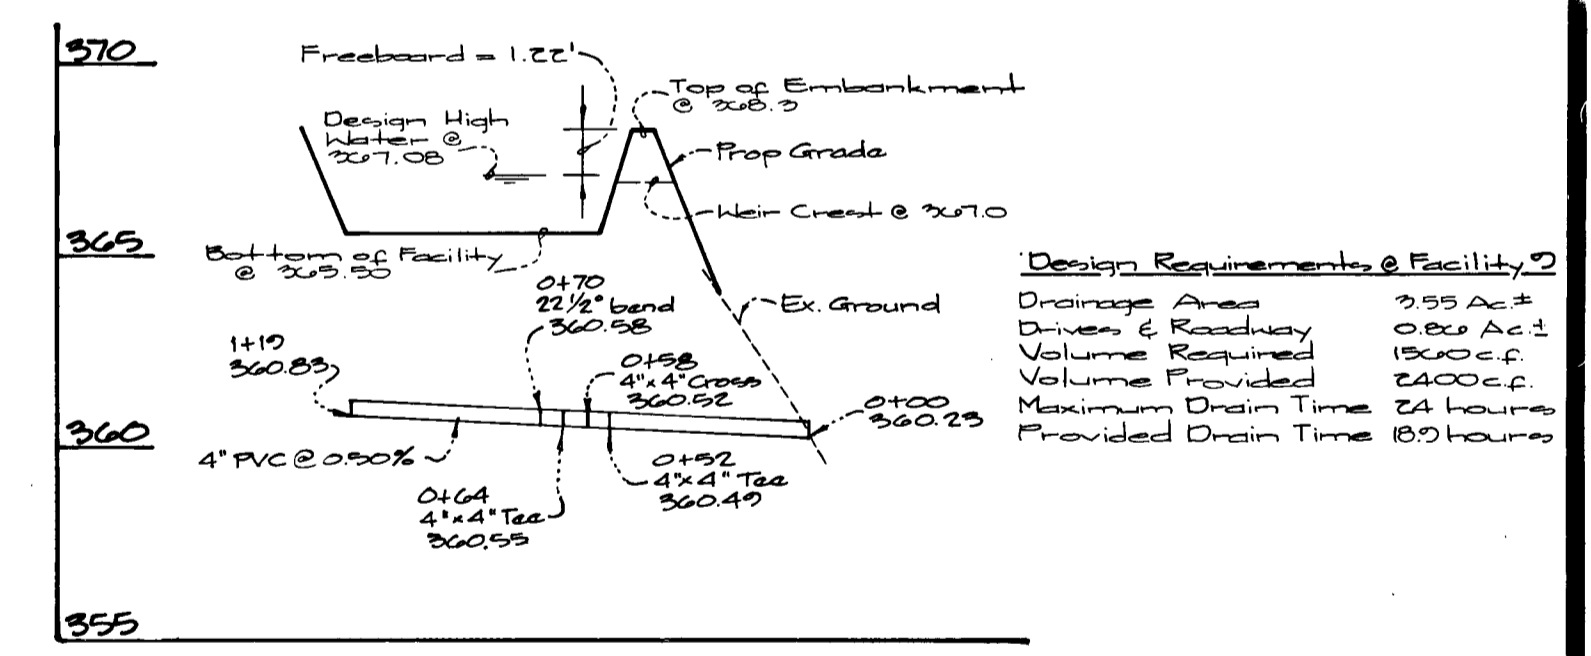 370
Freeboard = 1.22'
Top of Embankment
@ 368.3
Design High
Water @
367.08
Prop Grade
Weir Crest @ 367.0
365
Bottom of Facility
@ 365.50
0+70
22 1/2° bend
360.58
Ex. Ground
1+19
360.83
0+58
4"x4" Cross
360.52
0+00
360.23
360
4" PVC @ 0.50%
0+64
4"x4" Tee
360.55
0+52
4"x4" Tee
360.49
355
Design Requirements @ Facility 9
Drainage Area 3.55 Ac.±
Drives & Roadway 0.86 Ac.±
Volume Required 1560 c.f.
Volume Provided 2400 c.f.
Maximum Drain Time 24 hours
Provided Drain Time 18.9 hours